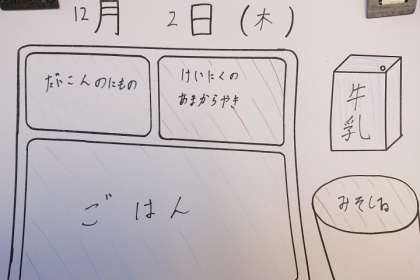 12月 2日(木)
だいこんのにもの
けいにくの
あまからやき
牛乳
ごはん
みそしる